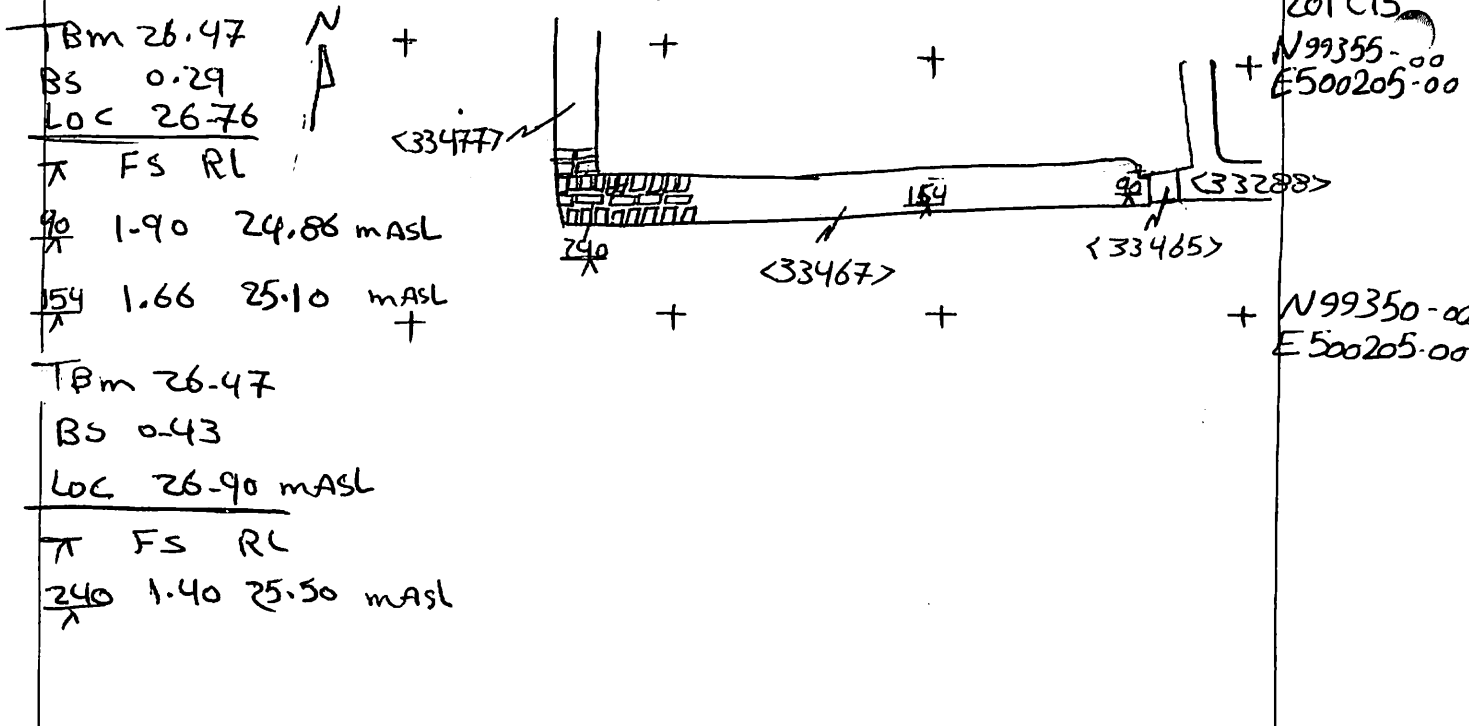 TBm 26.47
BS 0.29
LOC 26-76
FS RL
90 1-90 24.86 mASL
154 1.66 25.10 mASL
TBm 26-47
BS 0-43
LOC 26-90 mASL
FS RL
240 1.40 25.50 mASL
N
<33477>
240
<33467>
154
90
<33465>
<33288>
N99355-00
E500205-00
N99350-00
E500205.00